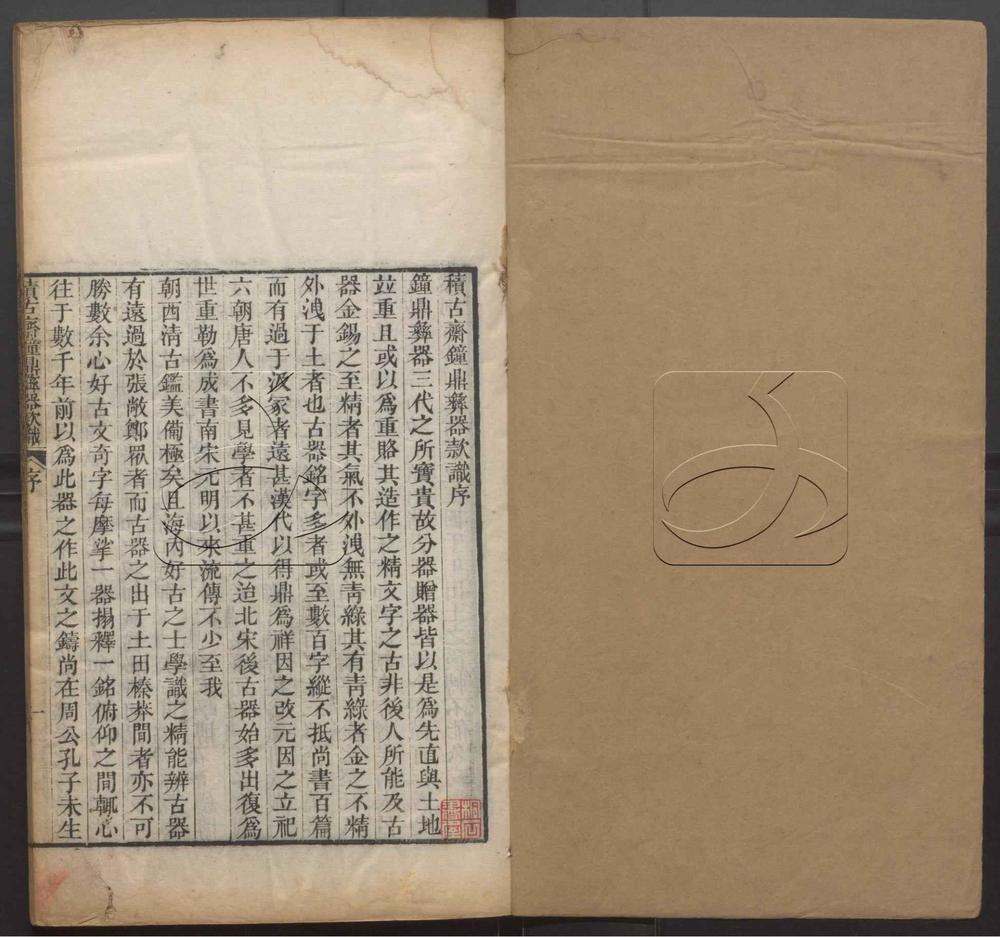 積古齋鐘鼎彝器款識序
鐘鼎彝器三代之所寶貴故分器贈器皆以是為先直與土地
竝重且或以為重賂其造作之精文字之古非後人所能及古
器金錫之至精者其氣不外洩無青綠其有青綠者金之不精
外洩于土者也古器銘字多者或至數百字縱不抵尚書百篇
而有過于汲冢者遠甚漢代以得鼎為祥因之改元因之立祀
六朝唐人不多見學者不甚重之迨北宋後古器始多出復為
世重勒為成書南宋元明以來流傳不少至我
朝西清古鑑美備極矣且海內好古之士學識之精能辨古器
有遠過於張敞鄭眾者而古器之出于土田榛莽間者亦不可
勝數余心好古文奇字每摩挲一器搨釋一銘俯仰之間輒心
往于數千年前以為此器之作此文之鑄尚在周公孔子未生
積古齋鐘鼎彝器款識
序
一